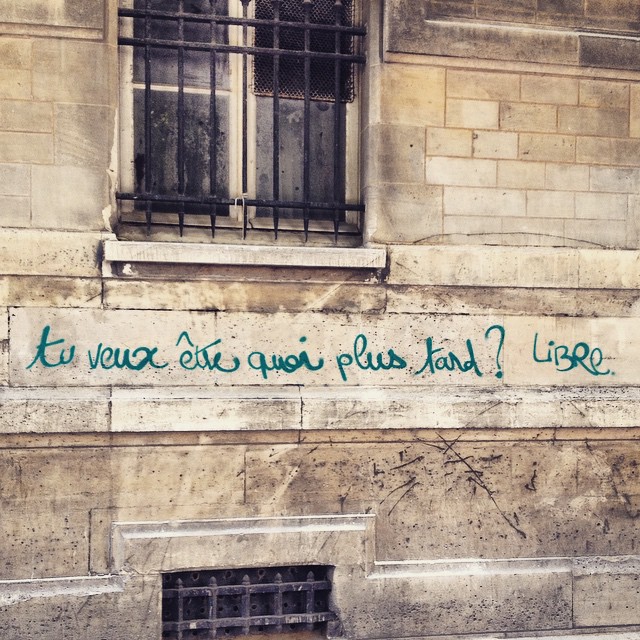 tu veux être quoi plus tard? LiBRe.